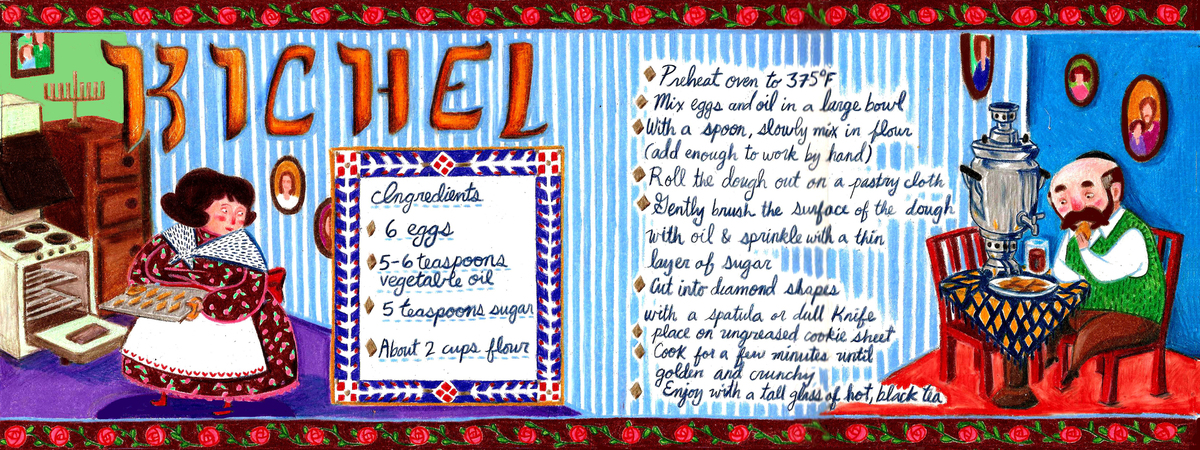 KICHEL
Ingredients
6 eggs
5-6 teaspoons
vegetable oil
5 teaspoons sugar
About 2 cups flour
Preheat oven to 375°F
Mix eggs and oil in a large bowl
With a spoon, slowly mix in flour
(add enough to work by hand)
Roll the dough out on a pastry cloth
Gently brush the surface of the dough
with oil & sprinkle with a thin
layer of sugar
Cut into diamond shapes
with a spatula or dull Knife
place on ungreased cookie sheet
Cook for a few minutes until
golden and crunchy
Enjoy with a tall glass of hot, black tea